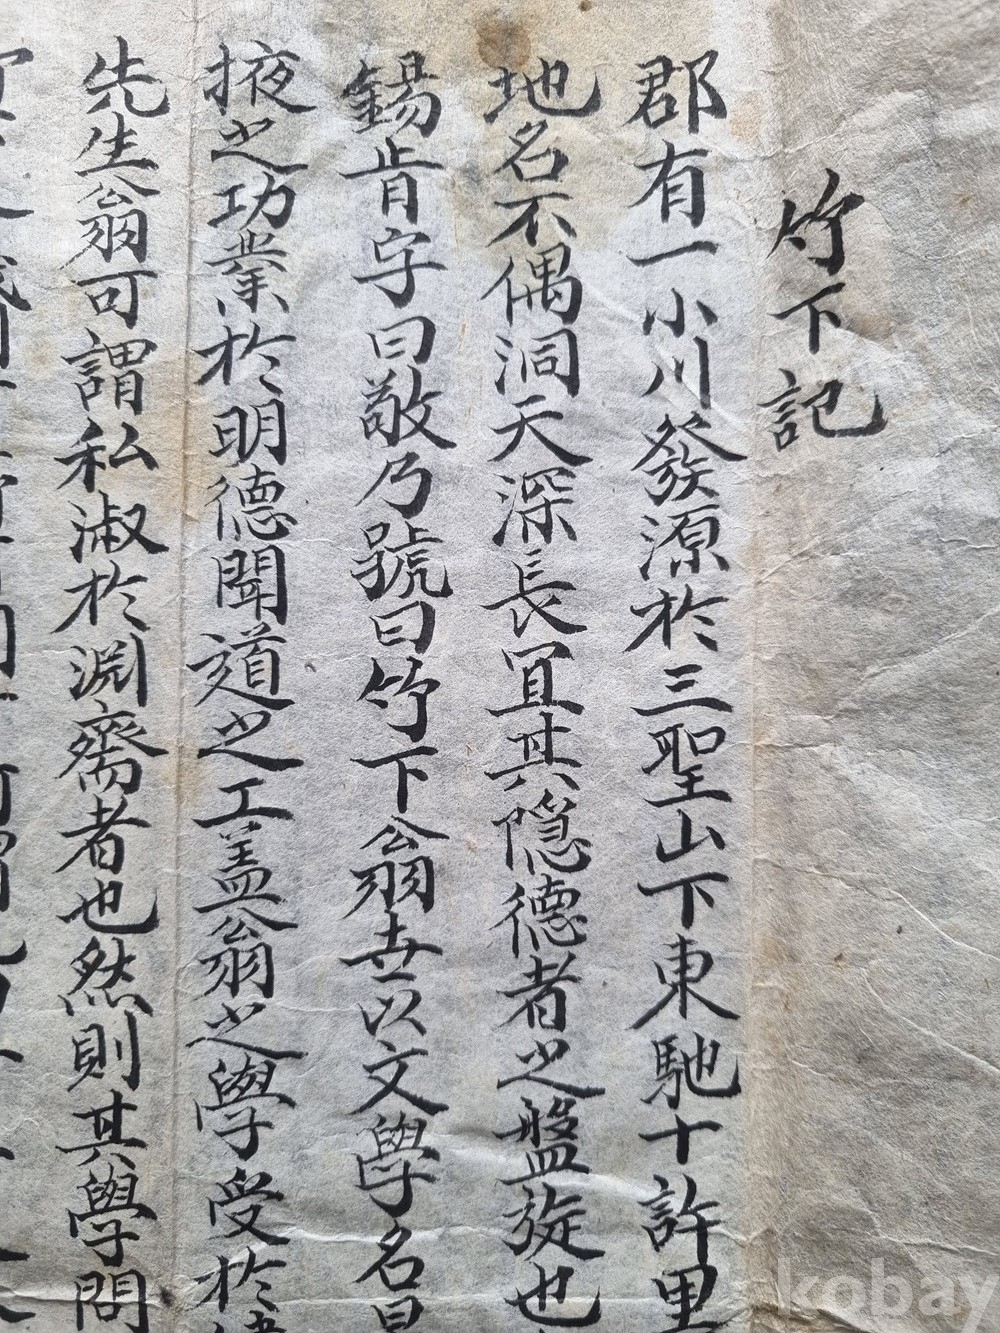 竹下記
郡有一小川發源於三聖山下東馳十許里
地名不偶洞天深長宜其隐德者之盤旋也
錫肯字曰敬乃號曰竹下翁世以文學名
掖之功業於明德聞道之工盖翁之學受於
先生翁可謂私淑於淵齋者也然則其學問
kobay